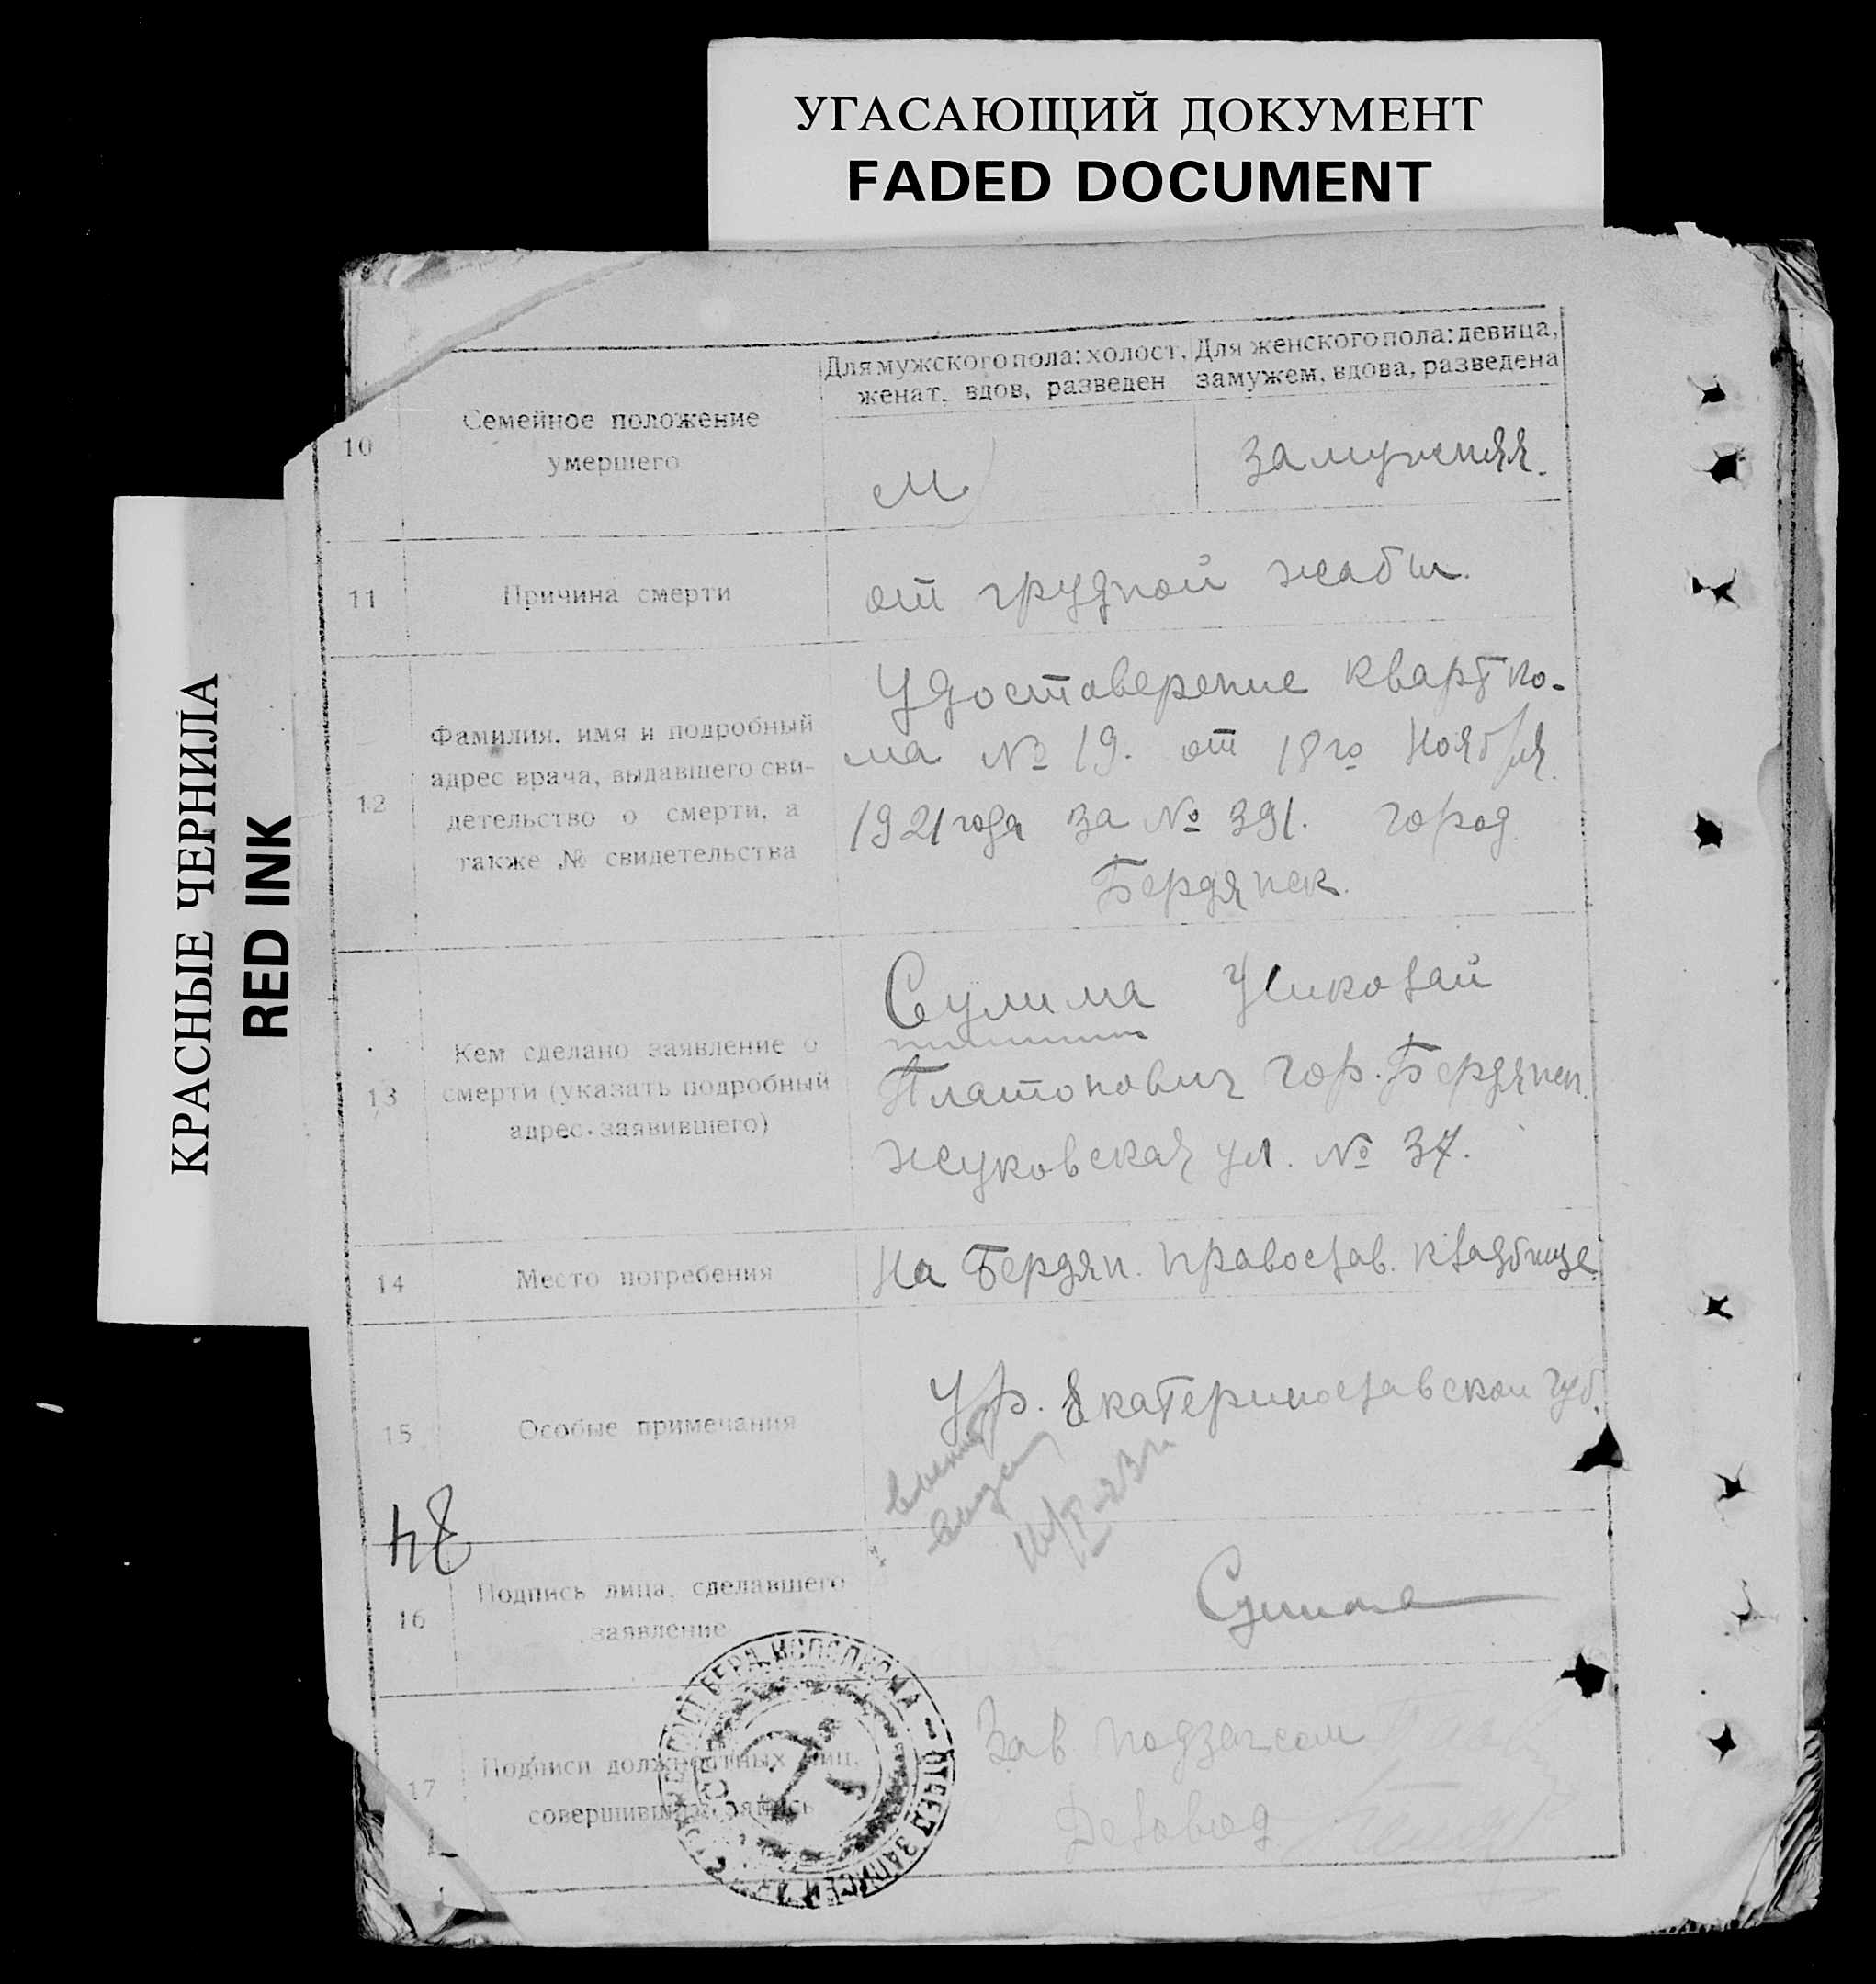 УГАСАЮЩИЙ ДОКУМЕНТ
FADED DOCUMENT
КРАСНЫЕ ЧЕРНИЛА
RED INK
10
Семейное положение
умершего
Для мужского пола: холост,
женат, вдов, разведен
Для женского пола: девица,
замужем, вдова, разведена
замужняя.
11
Причина смерти
от грудной жабы.
12
Фамилия, имя и подробный
адрес врача, выдавшего сви-
детельство о смерти, а
также № свидетельства
Удостоверение кварт ко-
ма № 19. от 18го Ноября
1921 года за № 391. город
Бердянск.
13
Кем сделано заявление о
смерти (указать подробный
адрес заявившего)
Сулима Николай
Платонович гор. Бердянск.
Жуковская ул. № 37.
14
Место погребения
На Бердян. православ. кладбище.
15
Особые примечания
Ур. Екатеринославской губ.
16
Подпись лица, сделавшего
заявление
Сулима
17
Подписи должностных лиц,
совершивших запись
Зав подзагсом
Деловод